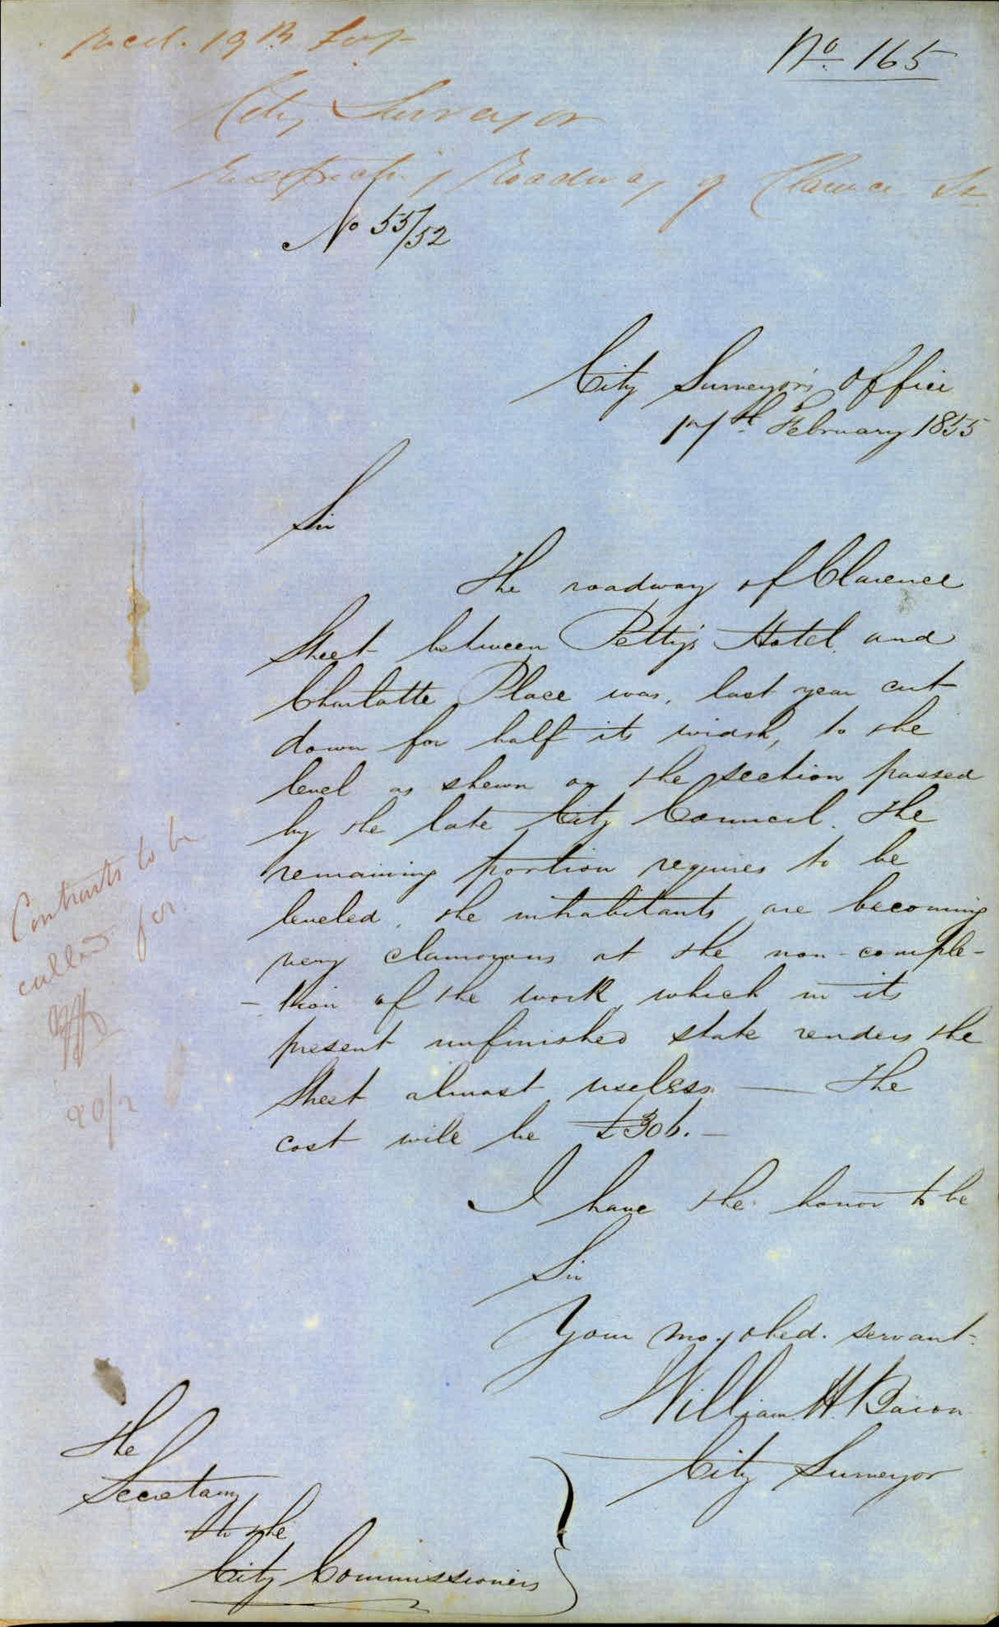 Recd. 19th Feby
No. 165
City Surveyor
Respecting Roadway of Clarence St
No 55/52
City Surveyor's Office
17th February 1855
Sir
The roadway of Clarence
Street between Petty's Hotel and
Charlotte Place was, last year cut
down for half its width, to the
level as shewn on the section passed
by the late City Council. The
remaining portion requires to be
leveled, the inhabitants are becoming
very clamorous at the non-comple-
-tion of the work which in its
present unfinished state renders the
Street almost useless — The
cost will be £306.—
I have the honor to be
Sir
Your mo. obed. servant.
William H.
City Surveyor
The
Secretary
to the
City Commissioners
Contracts to be
called for.
20/2